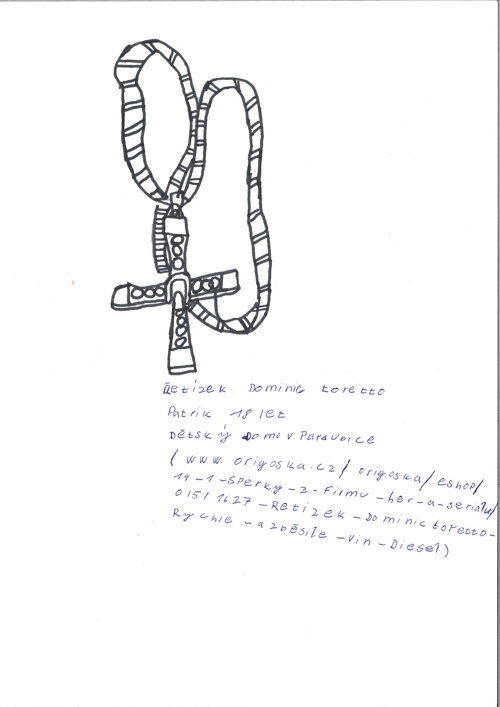 Řetízek Dominic toretto
Patrik 18 let
Dětský Domov Pardubice
(www.origoska.cz/origoska/eshop/
19-1-sperky-z-filmu-her-a-serialu/
0/5/1627-Retizek-Dominic toretto-
Rychle-a zběsile-Vin-Diesel)